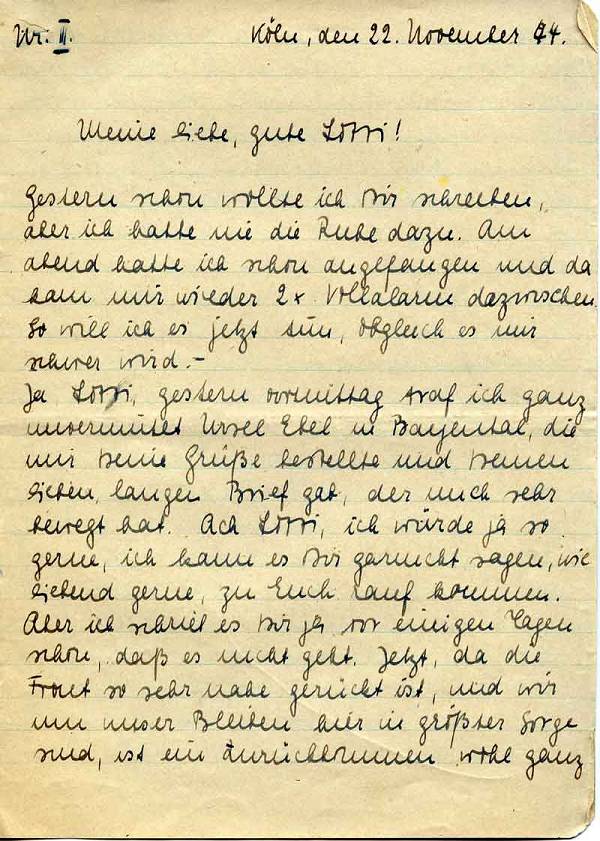 Nr. II.
Köln, den 22. November 44.
Meine liebe, gute Lotti!
Gestern schon wollte ich Dir schreiben,
aber ich hatte nie die Ruhe dazu. Am
abend hatte ich schon angefangen und da
kam mir wieder 2x Vollalarm dazwischen.
So will ich es jetzt tun, obgleich es mir
schwer wird.-
Ja Lotti, gestern vormittag traf ich ganz
unvermutet Ursel Ebel in Bayental, die
mir Deine Grüße bestellte und Deinen
lieben, langen Brief gab, der mich sehr
bewegt hat. Ach Lotti, ich würde ja so
gerne, ich kann es Dir garnicht sagen, wie
liebend gerne, zu Euch rauf kommen.
Aber ich schrieb es Dir ja vor einigen Tagen
schon, daß es nicht geht. Jetzt, da die
Front so sehr nahe gerückt ist, und wir
um unser Bleiben hier in größter Sorge
sind, ist ein Zurückkommen wohl ganz